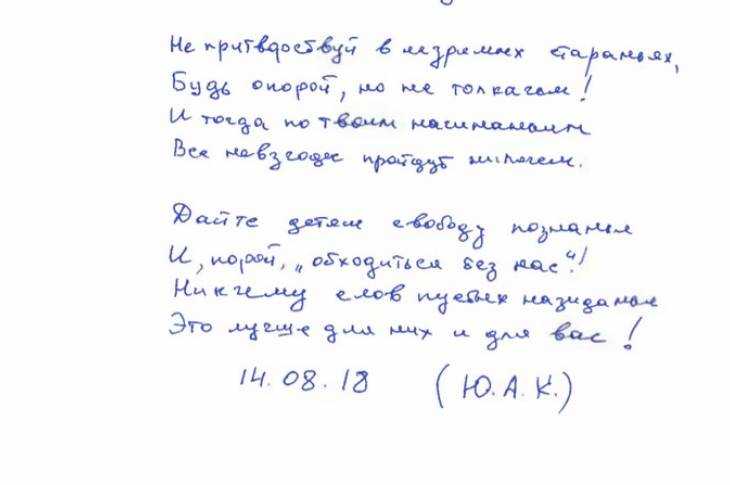 Не притворствуй в незримых стараньях,
Будь опорой, но не толкачом!
И тогда по твоим начинаньям
Все невзгоды пройдут нипочем.
Дайте детям свободу познанья
И, порой, „обходиться без нас“!
Ни к чему слов пустых назиданья
Это лучше для них и для вас!
14.08.18 (Ю.А.К.)